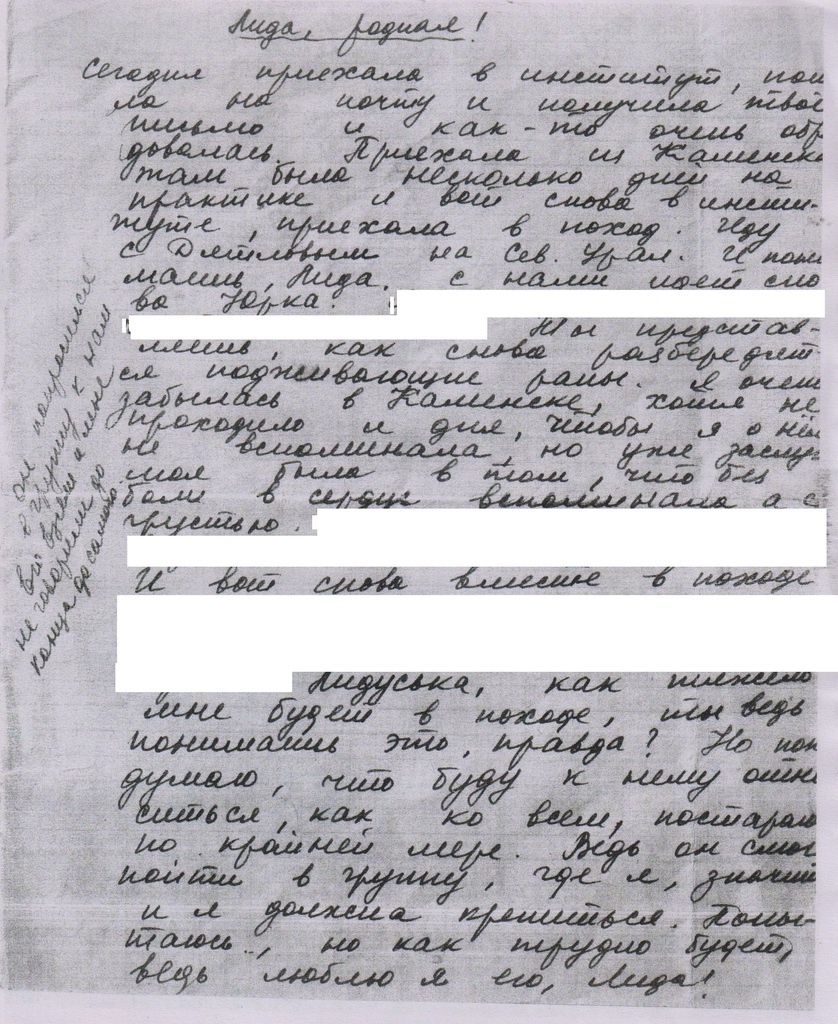 Лида, родная!
Сегодня приехала в институт, пош
ла на почту и получила твоё
письмо и как-то очень обр
довалась. Приехала из Каменска
там была несколько дней на
практике и вот снова в инсти-
туте, приехала в поход. Иду
с Дятловым на Сев. Урал. И пони
маешь, Лида, с нами идет сно
ва Юрка.
Ты представ-
ляешь, как снова разбередят
ся подживающие раны. Я очень
забылась в Каменске, хотя не
проходило и дня, чтобы я о нём
не вспоминала, но уже заслу
моя была в том, что без
боли в сердце вспоминала а с
грустью.
И вот снова вместе в походе
Лидуська, как тяжело
мне будет в походе, ты ведь
понимаешь это, правда? Но пока
думаю, что буду к нему отно
ситься, как ко всем, постараю
по крайней мере. Ведь он смог
пойти в группу, где я, значит
и я должна крепиться. Попы-
таюсь, но как трудно будет,
ведь люблю я его, Лида!
он попросился
в группу к нам
а мне
не говорили до
конца до самого